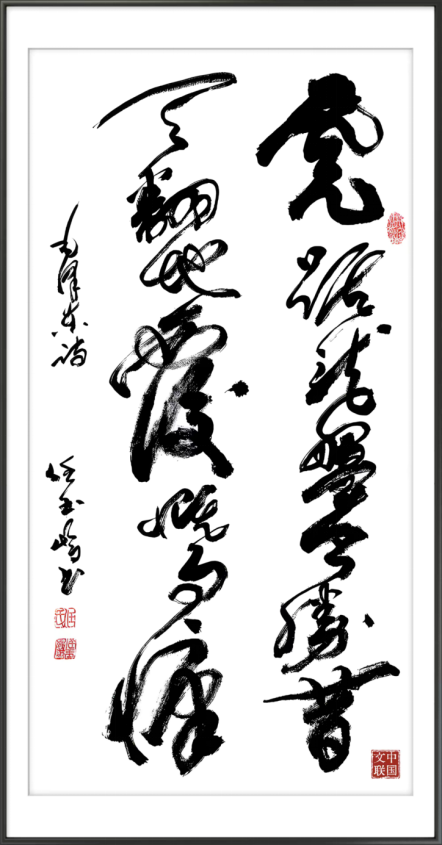 虎踞龙盘今胜昔
天翻地覆慨而慷
毛泽东诗
任玉岭书
中国文联